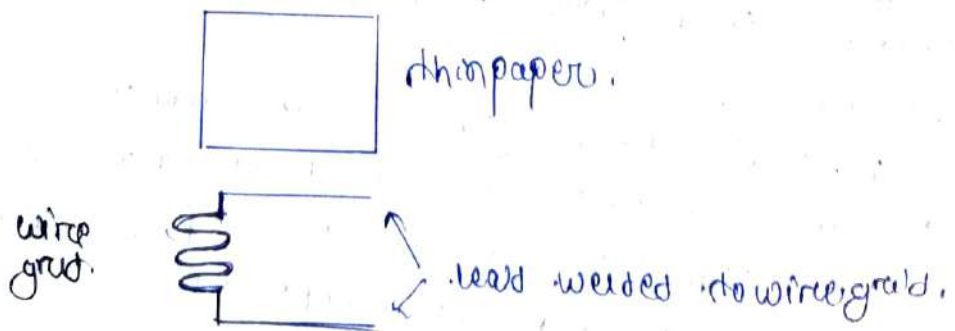 thin paper.
wire
grid.
lead welded to wire grid.